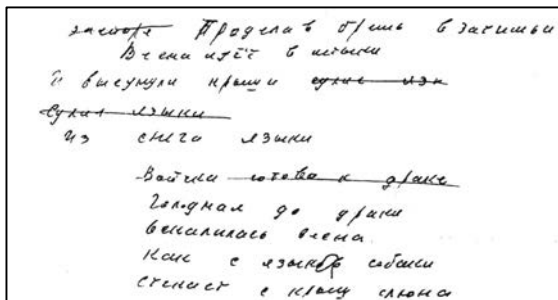 Проделав брешь в затишьи
Весна идёт в штыки
И высунули крыши сухие язы
Сухие языки
Из снега языки
готова к драке
Голодная до драки
Оскалилась весна
Как с языков собаки
Стекает с крыш слюна